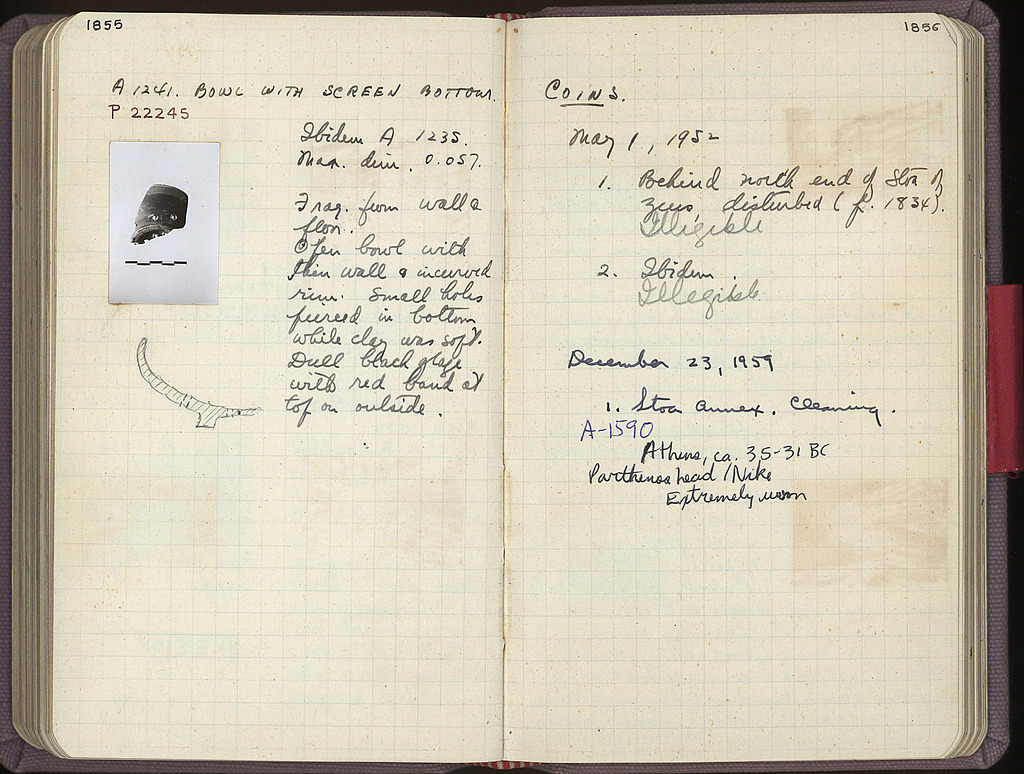 1855
A 1241. BOWL WITH SCREEN BOTTOM.
P 22245
Ibidem A 1235.
Max. dim. 0.057.
Frag. from wall &
floor.
Open bowl with
thin wall & incurved
rim. Small holes
pierced in bottom
while clay was soft.
Dull black glaze
with red band at
top on outside.
1856
COINS.
May 1, 1952
1. Behind north end of Stoa of
Zeus, disturbed (p. 1834).
Illegible
2. Ibidem.
Illegible
December 23, 1959
1. Stoa Annex. Cleaning.
A-1590
Athens, ca. 35-31 BC
Parthenos head / Nike
Extremely worn